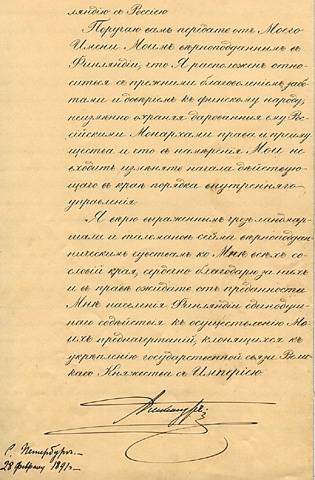 ляндію съ Россіею
Поручаю вамъ передать отъ Моего
Имени Моимъ вѣрноподданнымъ въ
Финляндіи, что Я расположенъ отно-
ситься съ прежними благоволеніемъ, забо-
тами и довѣріемъ къ финскому народу,
неизмѣнно охраняя дарованныя ему Рос-
сійскими Монархами права и преиму
щества и что въ намѣренія Мои не
входитъ измѣнять начала дѣйствую-
щаго въ краѣ порядка внутренняго
управленія
Я вѣрю выраженнымъ чрезъ ландмар-
шала и тальмановъ сейма вѣрноподдан-
ническимъ чувствамъ ко Мнѣ всѣхъ со-
словій края, сердечно благодарю за нихъ
и въ правѣ ожидать отъ преданности
Мнѣ населенія Финляндіи единодуш-
наго содѣйствія къ осуществленію Мо-
ихъ предначертаній, клонящихся къ
укрѣпленію государственной связи Вели-
каго Княжества съ Имперіею
Александръ
С. Петербургъ
28 Февраля 1891 г.